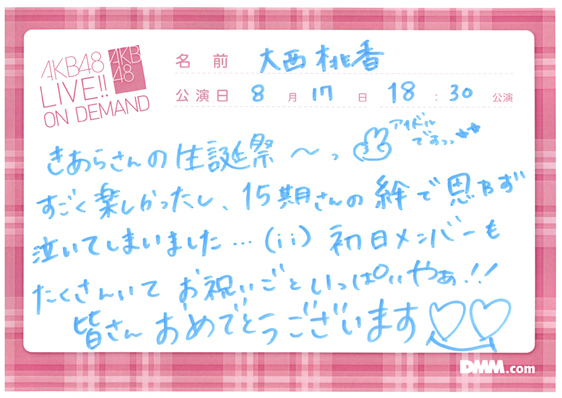 AKB48
LIVE!!
ON DEMAND
AKB
48
名前 大西桃香
公演日 8月17日 18:30公演
きあらさんの生誕祭〜っ アイドルですっっ
すごく楽しかったし、15期さんの絆で思わず
泣いてしまいました…(ii) 初日メンバーも
たくさんいてお祝いごといっぱいやぁ!!
皆さんおめでとうございます♡♡
DMM.com